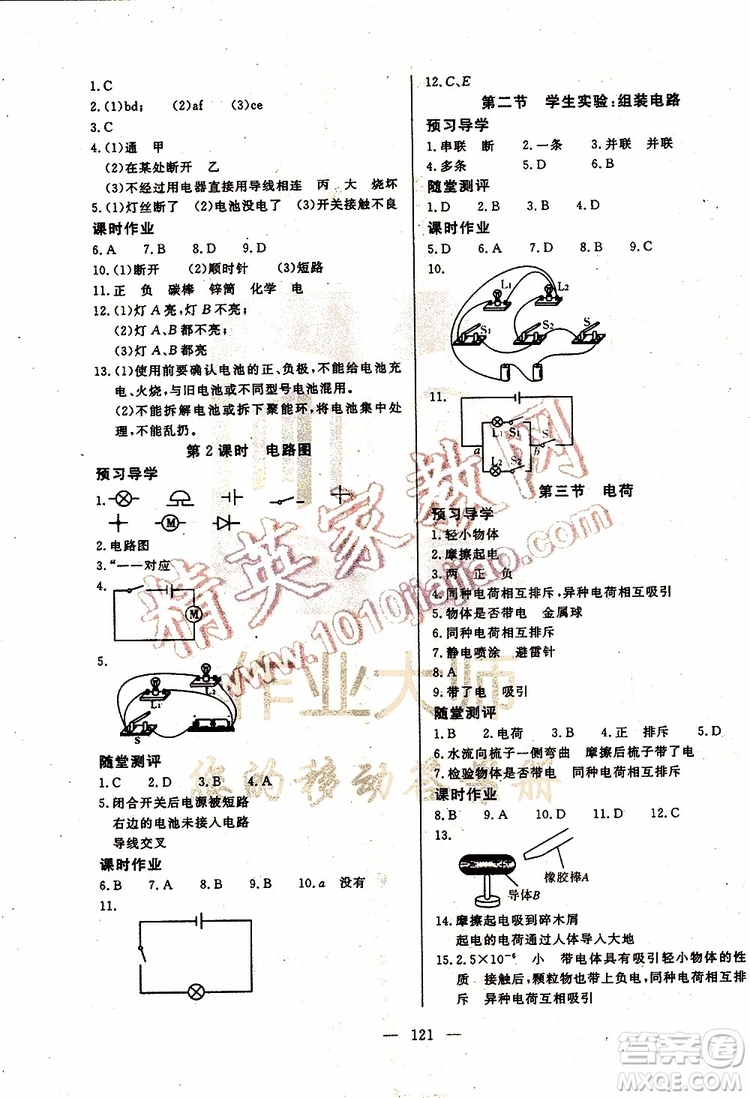 1.C
2.(1)bd; (2)af (3)ce
3.C
4.(1)通 甲
(2)在某处断开 乙
(3)不经过用电器直接用导线相连 丙 大 烧坏
5.(1)灯丝断了 (2)电池没电了 (3)开关接触不良
课时作业
6.A 7.B 8.D 9.D
10.(1)断开 (2)顺时针 (3)短路
11.正 负 碳棒 锌筒 化学 电
12.(1)灯A亮,灯B不亮;
(2)灯A、B都不亮;
(3)灯A、B都亮
13.(1)使用前要确认电池的正、负极,不能给电池充
电、火烧,与旧电池或不同型号电池混用。
(2)不能拆解电池或拆下聚能环,将电池集中处
理,不能乱扔。
第2课时 电路图
预习导学
1.
M
2.电路图
3.“一一对应
4.
M
5.
L1
L2
S
随堂测评
1.C 2.D 3.A 4.A
5.闭合开关后电源被短路
右边的电池未接入电路
导线交叉
课时作业
6.B 7.A 8.B 9.B 10.a 没有
11.
12.C、E
第二节 学生实验:组装电路
预习导学
1.串联 断 2.一条 3.并联 并联
4.多条 5.D 6.B
随堂测评
1.D 2.B 3.D 4.B
课时作业
5.D 6.B 7.D 8.B 9.C
10.
L1
L2
S1
S2
S
11.
L1 S1
a
S
b
L2 S2
第三节 电荷
预习导学
1.轻小物体
2.摩擦起电
3.两 正 负
4.同种电荷相互排斥,异种电荷相互吸引
5.物体是否带电 金属球
6.同种电荷相互排斥
7.静电喷涂 避雷针
8.A
9.带了电 吸引
随堂测评
1.B 2.电荷 3.B 4.正 排斥 5.D
6.水流向梳子一侧弯曲 摩擦后梳子带了电
7.检验物体是否带电 同种电荷相互排斥
课时作业
8.B 9.A 10.D 11.D 12.C
13.
橡胶棒A
导体B
14.摩擦起电吸到碎木屑
起电的电荷通过人体导入大地
15.2.5×10⁻⁶ 小 带电体具有吸引轻小物体的性
质 接触后,颗粒物也带上负电,同种电荷相互排
斥 异种电荷相互吸引
— 121 —
精英家教网
www.1010jiajiao.com
作业大师
您的移动答案册
答案圈
MXQE.COM